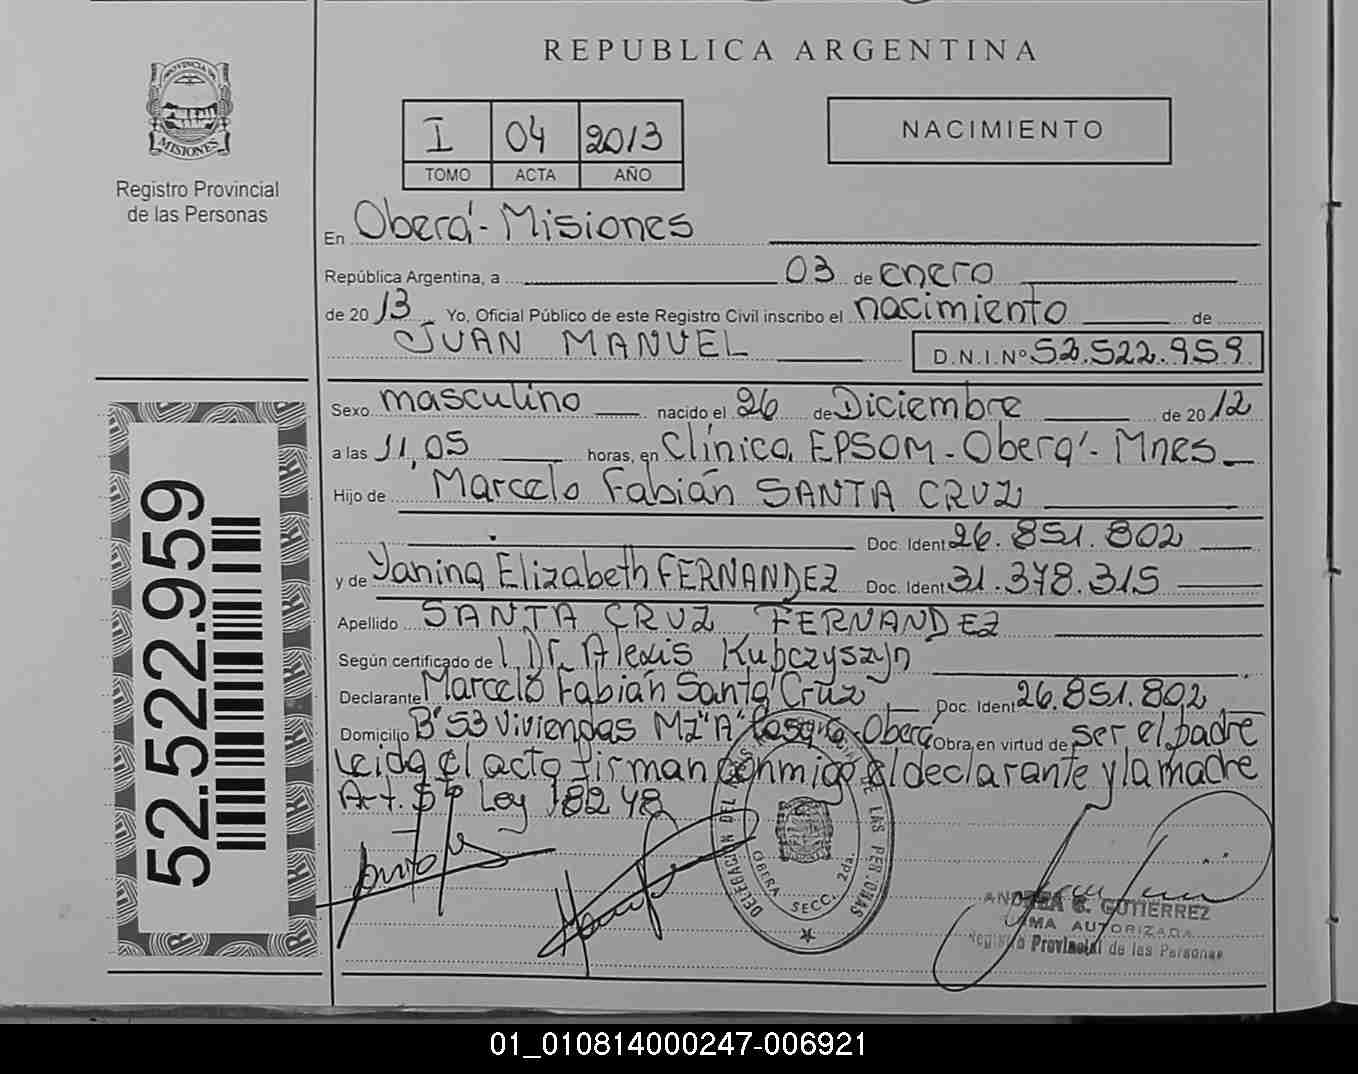 REPUBLICA ARGENTINA
PROVINCIA DE
MISIONES
Registro Provincial
de las Personas
I 04 2013
TOMO ACTA AÑO
NACIMIENTO
En Oberá - Misiones
República Argentina, a 03 de enero
de 20 13 Yo, Oficial Público de este Registro Civil inscribo el nacimiento de
JUAN MANUEL D.N.I.Nº 52.522.959
Sexo masculino nacido el 26 de Diciembre de 20 12
a las 11,05 horas, en Clínica EPSOM - Oberá - Mnes
Hijo de Marcelo Fabián SANTA CRUZ
Doc. Ident 26.851.802
y de Yanina Elizabeth FERNANDEZ Doc. Ident 31.378.315
Apellido SANTA CRUZ FERNANDEZ
Según certificado de Dr. Alexis Kubczyszyn
Declarante Marcelo Fabián Santa Cruz Doc. Ident 26.851.802
Domicilio Bº 53 Viviendas Mz "A" Oberá Obra en virtud de ser el padre
Leida el acta firman conmigo el declarante y la madre
Art. 5º Ley 18248
52.522.959
DELEGACION DEL REGISTRO DE LAS PERSONAS
OBERA SECC. 2da.
ANDREA GUTIERREZ
FIRMA AUTORIZADA
Registro Provincial de las Personas
01_010814000247-006921